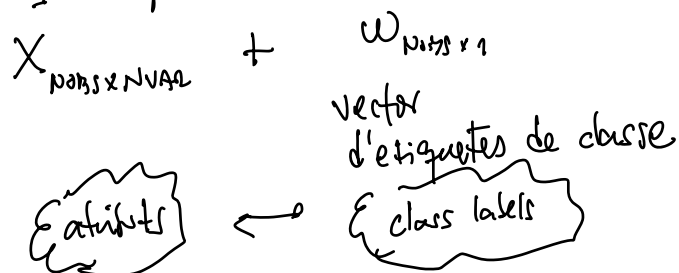 X NOBS X NVAR + ω NOBS X 1
vector
d'etiquetes de classe
atributs ↔ class labels